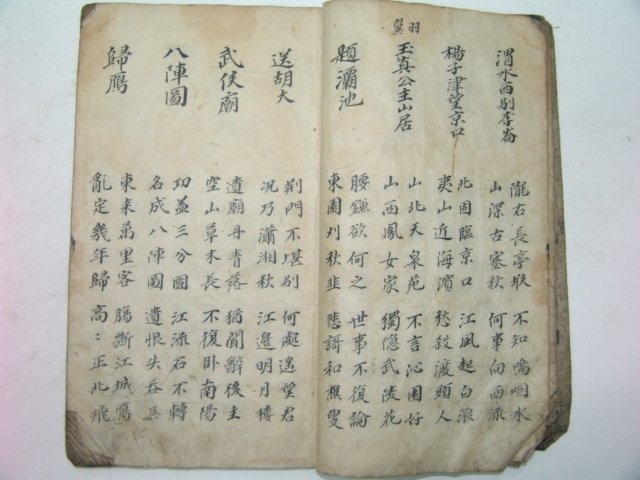 羽翼
渭水西別李崙
隴右長亭堠 不知嗚咽水
山深古塞秋 何事向西流
楊子津望京口
北固臨京口 江風起白浪
夷山近海濱 愁殺渡頭人
玉真公主山居
山北天泉苑 不言沁園好
山西鳳女家 獨隐武陵花
題灞池
腰鎌欲何之 世事不復論
東園刈秋韭 悲謌和樵叟
送胡大
荆門不堪別 何處遙望君
况乃瀟湘秋 江邉明月樓
武侯廟
遺廟丹青落 猶聞辭後主
空山草木長 不復卧南陽
八陣圖
功盖三分國 江流石不轉
名成八陣圖 遺恨失吞吳
歸鴈
東来萬里客 腸斷江城鴈
亂定幾年歸 高〻正北飛